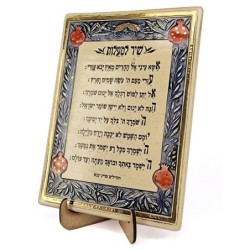 שיר למעלות
אשא עיני אל ההרים מאין יבא עזרי:
עזרי מעם ה' עשה שמים וארץ:
אל יתן למוט רגלך אל ינום שמרך:
הנה לא ינום ולא יישן שומר ישראל:
ה' שמרך ה' צלך על יד ימינך:
יומם השמש לא יככה וירח בלילה:
ה' ישמרך מכל רע ישמר את נפשך:
ה' ישמר צאתך ובואך מעתה ועד עולם: